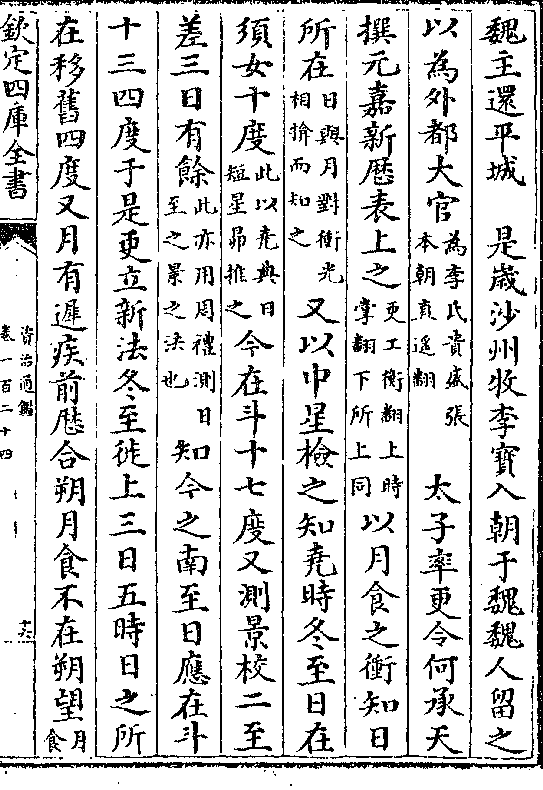 魏主還平城　是歳沙州牧李寳入朝于魏魏人留之
以為外都大官為李氏貴盛張本朝直遥翻　太子率更令何承天
撰元嘉新厯表上之更工衡翻上時掌翻下所上同以月食之衝知日
所在日與月對衝光相揜而知之又以中星檢之知堯時冬至日在
須女十度此以堯典日短星昴推之今在斗十七度又測景校二至
差三日有餘此亦用周禮測日至之景之法也知今之南至日應在斗
十三四度于是更立新法冬至徙上三日五時日之所
在移舊四度又月有遲疾前厯合朔月食不在朔望月食
欽定四庫全書
資治通鑑
卷一百二十四
十六